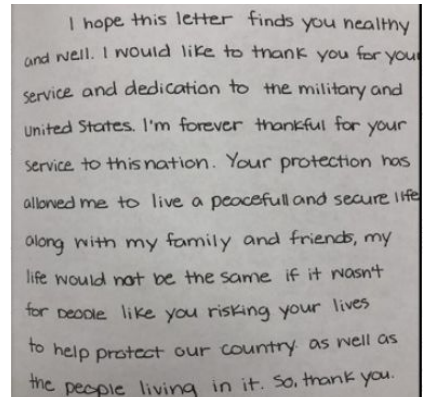 I hope this letter finds you healthy
and well. I would like to thank you for your
service and dedication to the military and
United States. I'm forever thankful for your
service to this nation. Your protection has
allowed me to live a peacefull and secure life
along with my family and friends, my
life would not be the same if it wasn't
for people like you risking your lives
to help protect our country as well as
the people living in it. So, thank you.